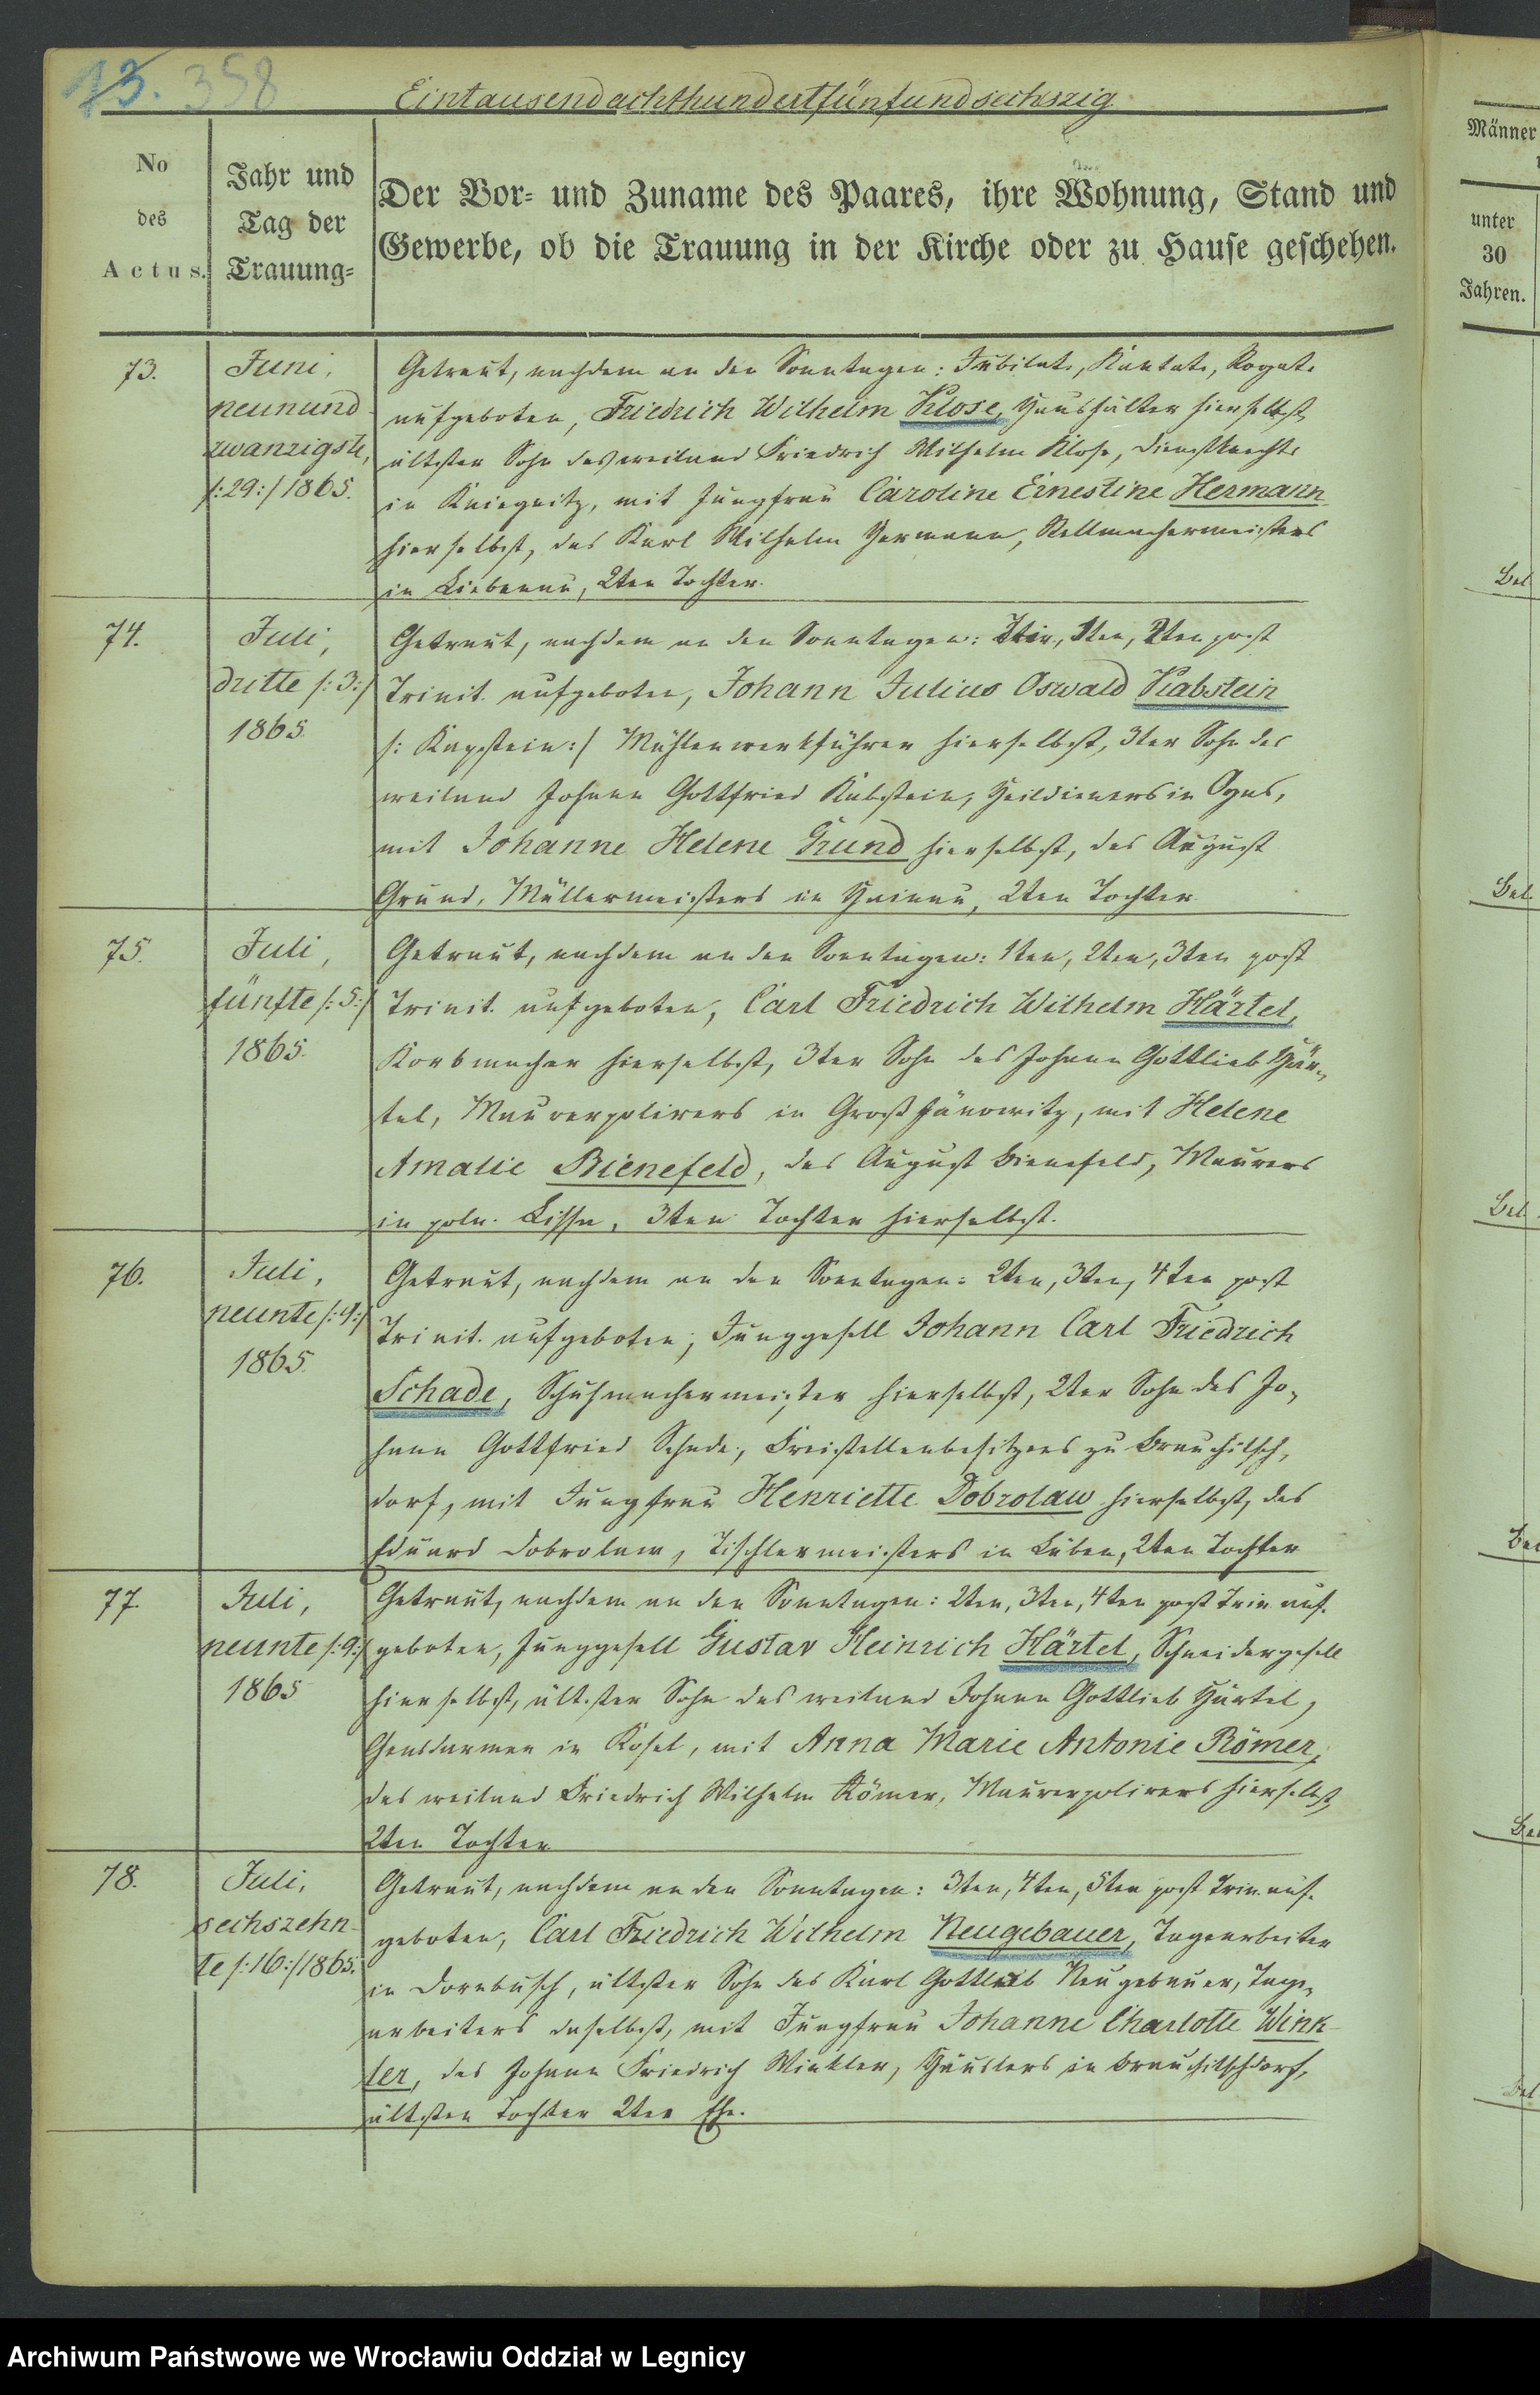 13. 358
Eintausendachthundertfünfundsechszig.
No des Actus.
Jahr und Tag der Trauung=
Der Vor= und Zuname des Paares, ihre Wohnung, Stand und
Gewerbe, ob die Trauung in der Kirche oder zu Hause geschehen.
73.
Juni,
neunund
zwanzigste,
/:29:/ 1865.
Getraut, nachdem an den Sonntagen: Jubilate, Kantate, Rogate
aufgeboten, Friedrich Wilhelm Klose, Haushälter hierselbst,
ältester Sohn des weiland Friedrich Wilhelm Klose, Dienstknechts
in Kniegnitz, mit Jungfrau Caroline Ernestine Hermann
hierselbst, des Karl Wilhelm Hermann, Stellmachermeisters
in Liebenau, 2ten Tochter.
74.
Juli,
dritte /:3:/
1865.
Getraut, nachdem an den Sonntagen: 1ten, 2ten post
Trinit. aufgeboten, Johann Julius Oswald Kabstein
/: Kapstein:/ Mühlenwerkführer hierselbst, 3ter Sohn des
weiland Johann Gottfried Kabstein, Heildieners in Oyas,
mit Johanne Helene Grund hierselbst, des August
Grund, Müllermeisters in Hainau, 2ten Tochter.
75.
Juli,
fünfte /:5:/
1865.
Getraut, nachdem an den Sonntagen: 1ten, 2ten, 3ten post
Trinit. aufgeboten, Carl Friedrich Wilhelm Härtel,
Korbmacher hierselbst, 3ter Sohn des Johann Gottlieb Här-
tel, Maurerpolirers in Groß Jänowitz, mit Helene
Amalie Bienefeld, des August Bienefeld, Maurers
in poln. Lissa, 3ten Tochter hierselbst.
76.
Juli,
neunte /:9:/
1865.
Getraut, nachdem an den Sonntagen: 2ten, 3ten, 4ten post
Trinit. aufgeboten, Junggesell Johann Carl Friedrich
Schade, Schuhmachermeister hierselbst, 2ter Sohn des Jo-
hann Gottfried Schade, Freistellenbesitzers zu Brauchitsch-
dorf, mit Jungfrau Henriette Dobrolaw hierselbst, des
Eduard Dobrolaw, Tischlermeisters in Lüben, 2ten Tochter
77.
Juli,
neunte /:9:/
1865
Getraut, nachdem an den Sonntagen: 2ten, 3ten, 4ten post Trin. auf-
geboten, Junggesell Gustav Heinrich Härtel, Schneidergesell
hierselbst, ältester Sohn des weiland Johann Gottlieb Härtel,
Gensdarmen in Kosel, mit Anna Marie Antonie Römer,
des weiland Friedrich Wilhelm Römer, Maurerpolirers hierselbst,
2ten Tochter
78.
Juli,
sechszehn-
te /:16:/1865.
Getraut, nachdem an den Sonntagen: 3ten, 4ten, 5ten post Trin. auf-
geboten, Carl Friedrich Wilhelm Neugebauer, Tagearbeiter
in Dornbusch, ältester Sohn des Karl Gottlieb Neugebauer, Tage-
arbeiters daselbst, mit Jungfrau Johanne Charlotte Wink-
ler, des Johann Friedrich Winkler, Häuslers in Brauchitschdorf,
ältesten Tochter 2ter Ehe.
Männer
unter
30
Jahren.
Archiwum Państwowe we Wrocławiu Oddział w Legnicy